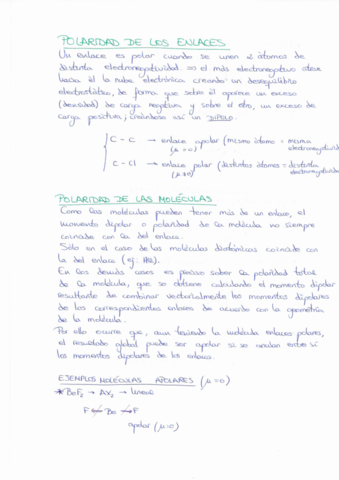 POLARIDAD DE LOS ENLACES
Un enlace es polar cuando se unen 2 átomos de
distinta electronegatividad ⇒ el más electronegativo atrae
hacia él la nube electrónica creando un desequilibrio
electrostático, de forma que sobre él aparece un exceso
(densidad) de carga negativa y sobre el otro, un exceso de
carga positiva; creándose así un DIPOLO.
C – C → enlace apolar (mismo átomo = misma
(μ = 0) electronegativid
C – Cl → enlace polar (distintos átomos = distinta
(μ≠0) electronegativida
POLARIDAD DE LAS MOLÉCULAS
Como las moléculas pueden tener más de un enlace, el
momento dipolar o polaridad de la molécula no siempre
coincide con la del enlace.
Sólo en el caso de las moléculas diatómicas coincide con
la del enlace (ej:
En los demás casos es preciso saber la polaridad total
de la molécula, que se obtiene calculando el momento dipolar
resultante de combinar vectorialmente los momentos dipolares
de los correspondientes enlaces de acuerdo con la geometría
de la molécula.
Por ello ocurre que, aun teniendo la molécula enlaces polares,
el resultado global puede ser apolar si se anulan entre sí
los momentos dipolares de los enlaces.
EJEMPLOS MOLÉCULAS APOLARES (μ=0)
* BeF₂ → AX₂ → lineal
F ← Be → F
apolar (μ=0)